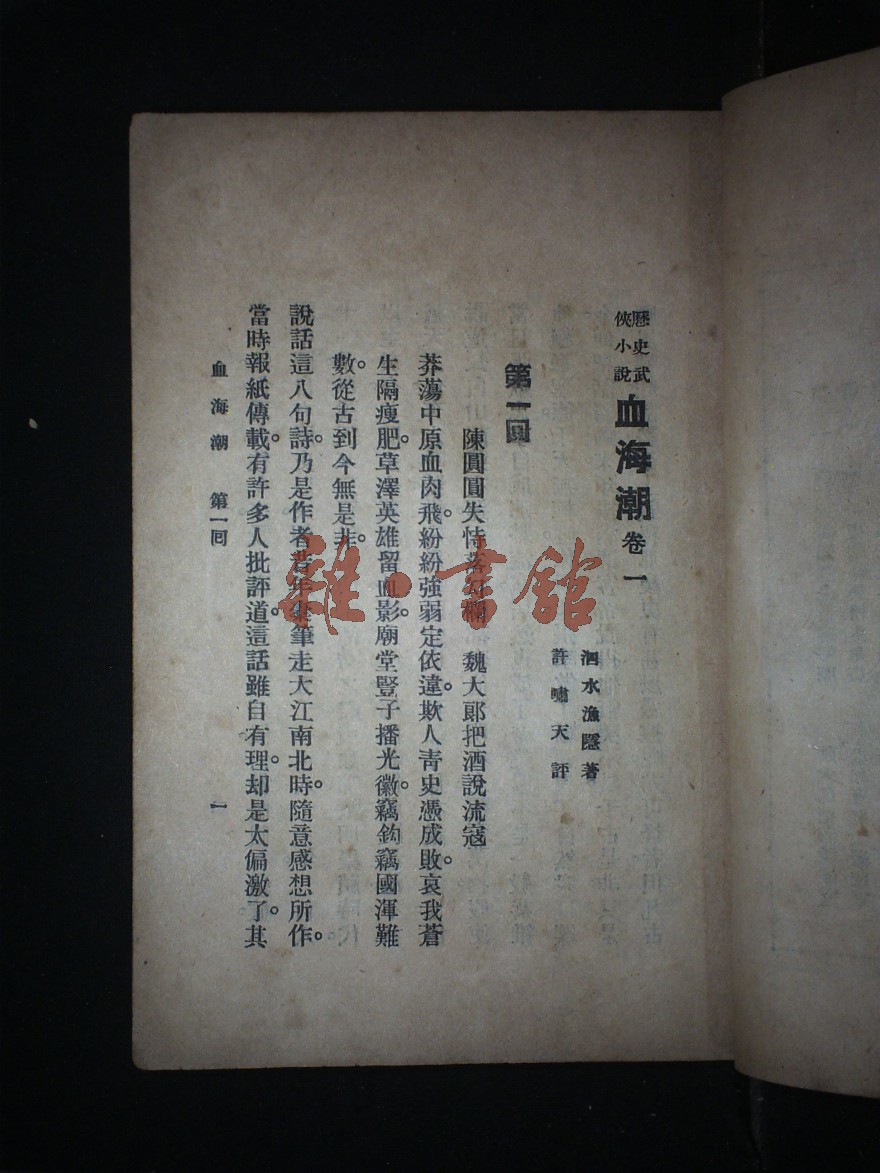 歷史武
俠小說
血海潮 卷一
泗水漁隱著
許嘯天評
第一回
陳圓圓失恃落勾欄 魏大郎把酒說流寇
莽蕩中原血肉飛。紛紛強弱定依違。欺人靑史憑成敗。哀我蒼
生隔瘦肥。草澤英雄留血影。廟堂豎子播光徽。竊鈎竊國渾難
數。從古到今無是非。
說話這八句詩。乃是作者昔年橐筆走大江南北時。隨意感想所作。
當時報紙傳載。有許多人批評道。這話雖自有理。却是太偏激了。其
血海潮 第一囘
一
雜·書館